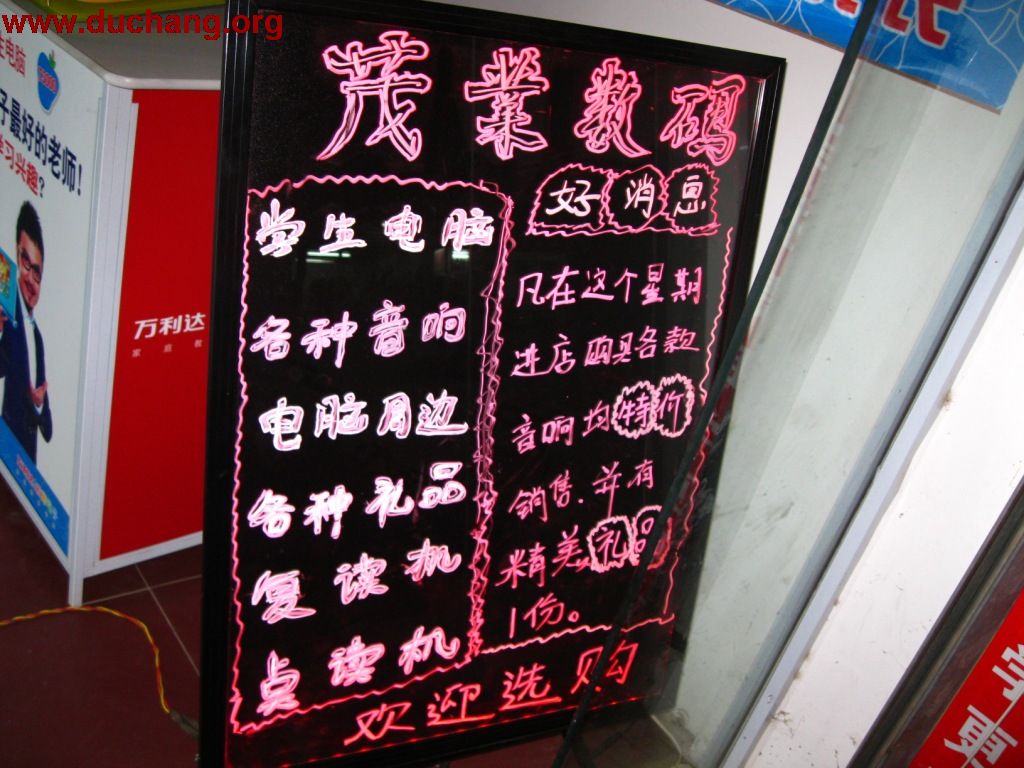 www.duchang.org
生电脑
子最好的老师！
学习兴趣？
万利达
茂業数码
学生电脑
各种音响
电脑周边
各种礼品
复读机
点读机
好消息
凡在这个星期
进店购买各款
音响均特价
销售、并有
精美礼品
1份。
欢迎选购